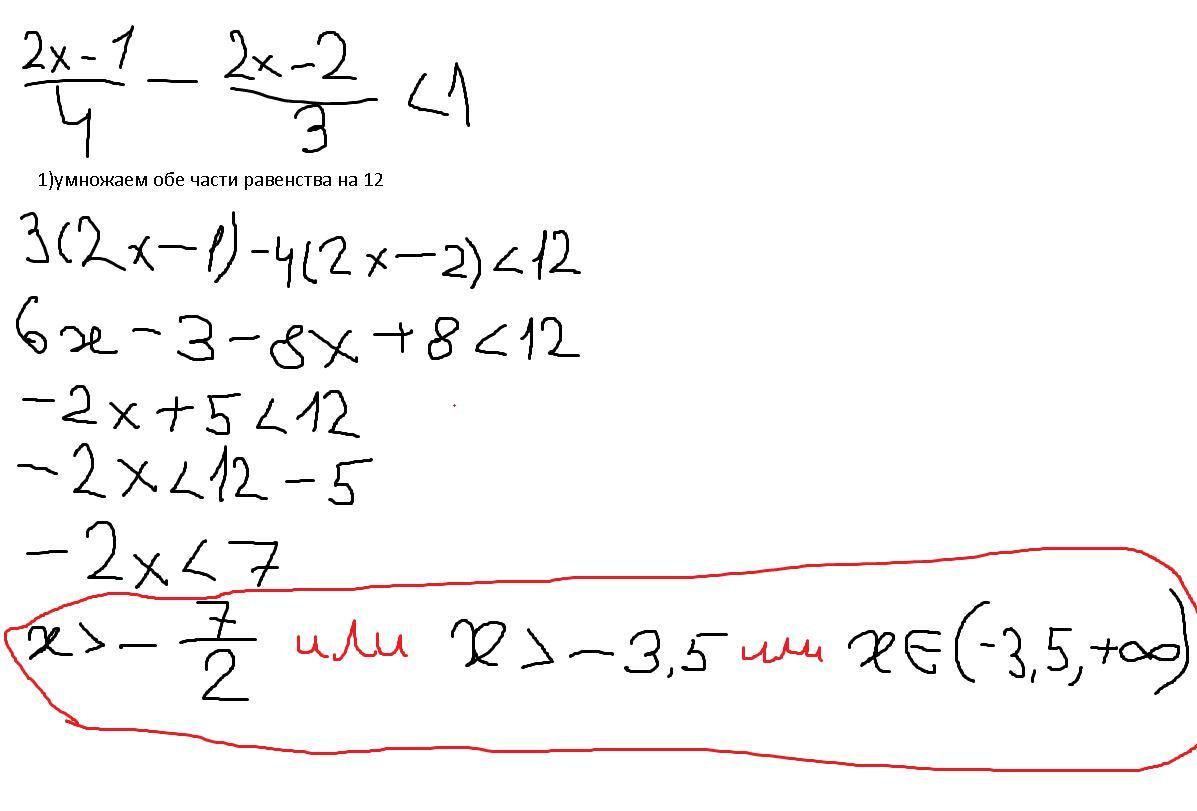 (2x-1)/4 - (2x-2)/3 <1
1)умножаем обе части равенства на 12
3(2x-1)-4(2x-2)<12
6x-3-8x+8<12
-2x+5<12
-2x<12-5
-2x<7
x>-7/2 или x>-3,5 или x∈(-3,5,+∞)